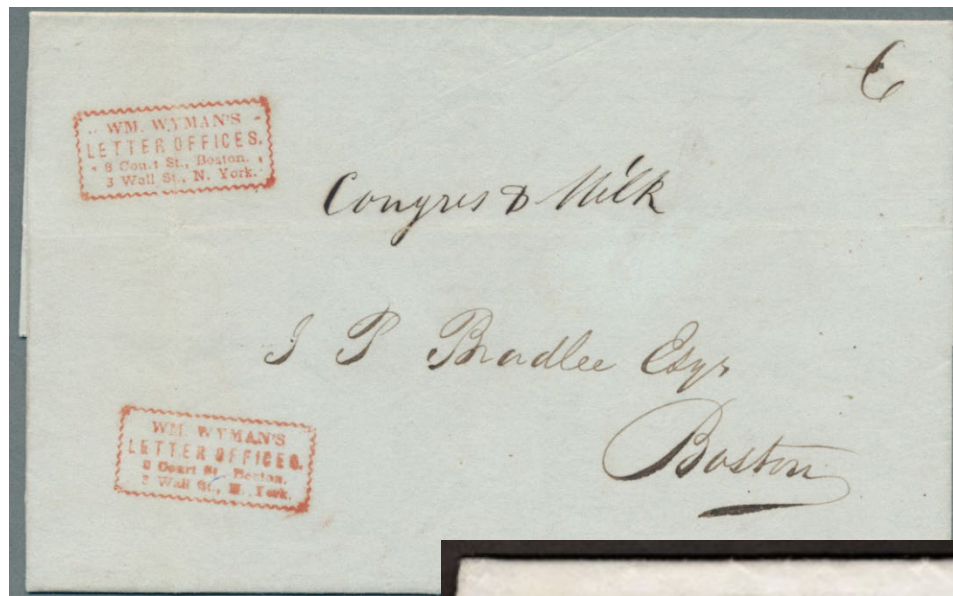 WM. WYMAN'S
LETTER OFFICES.
8 Court St., Boston.
3 Wall St., N. York.
Congres & Milk
J P Bradlee Esqr
Boston
WM. WYMAN'S
LETTER OFFICES.
8 Court St., Boston.
3 Wall St., N. York.